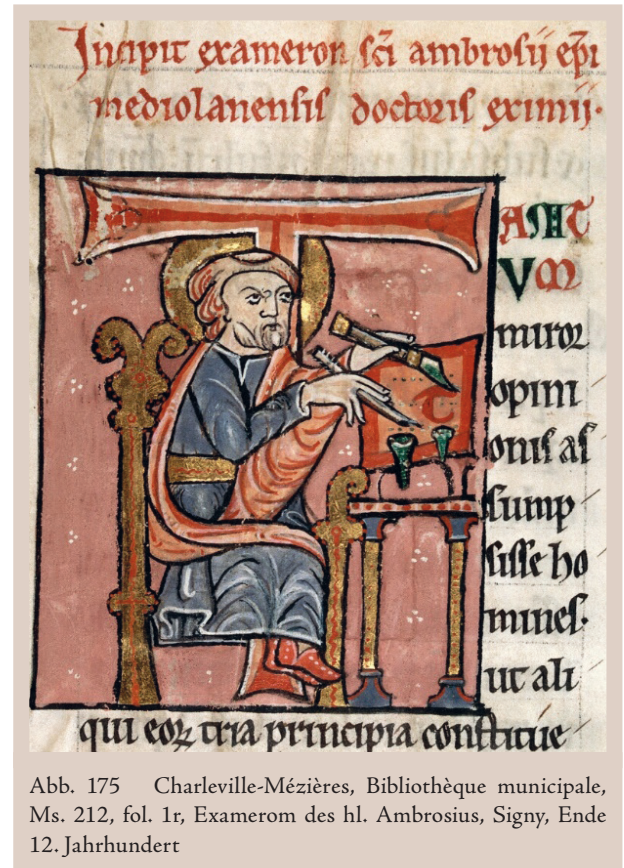 Incipit exameron sc̄i ambrosij ep̄i
mediolanensis doctoris eximij·
TANT
VM
miror
opini
onis as
sump
sisse ho
mines·
ut ali
qui eoꝝ tria principia constitue
Abb. 175 Charleville-Mézières, Bibliothèque municipale,
Ms. 212, fol. 1r, Examerom des hl. Ambrosius, Signy, Ende
12. Jahrhundert